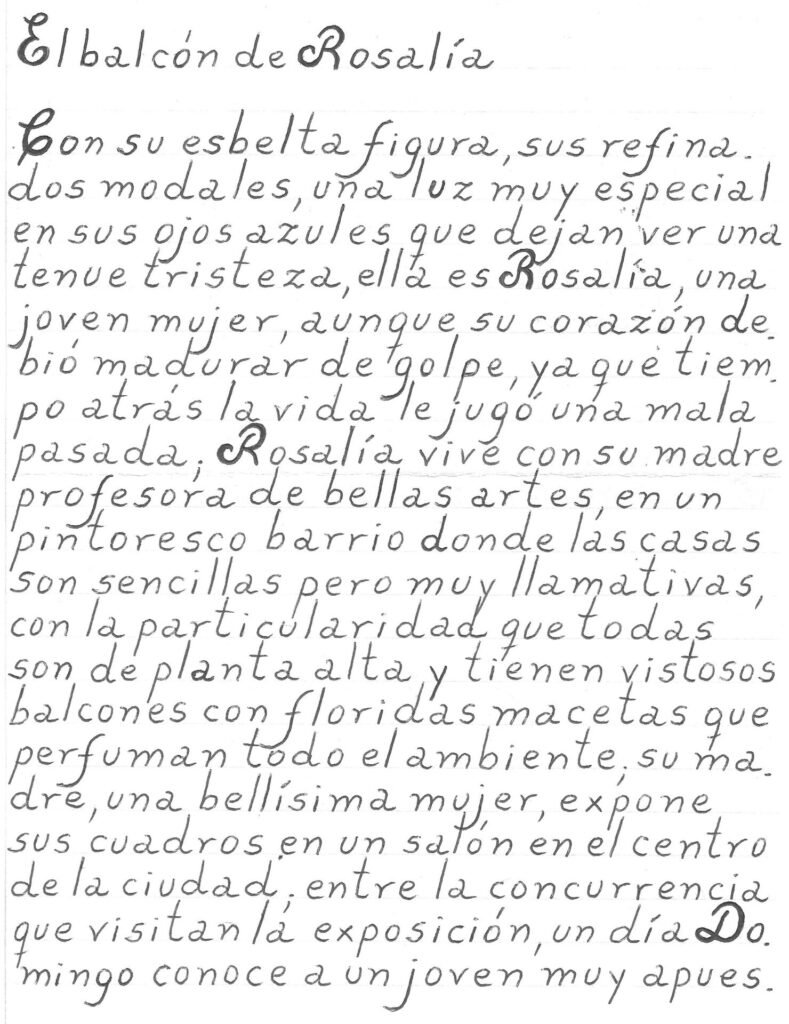 El balcón de Rosalía
Con su esbelta figura, sus refina.
dos modales, una luz muy especial
en sus ojos azules que dejan ver una
tenue tristeza, ella es Rosalía, una
joven mujer, aunque su corazón de.
bió madurar de golpe, ya que tiem.
po atrás la vida le jugó una mala
pasada; Rosalía vive con su madre
profesora de bellas artes, en un
pintoresco barrio donde las casas
son sencillas pero muy llamativas,
con la particularidad que todas
son de planta alta y tienen vistosos
balcones con floridas macetas que
perfuman todo el ambiente; su ma.
dre, una bellísima mujer, expone
sus cuadros en un salón en el centro
de la ciudad; entre la concurrencia
que visitan la exposición, un día Do.
mingo conoce a un joven muy apues.